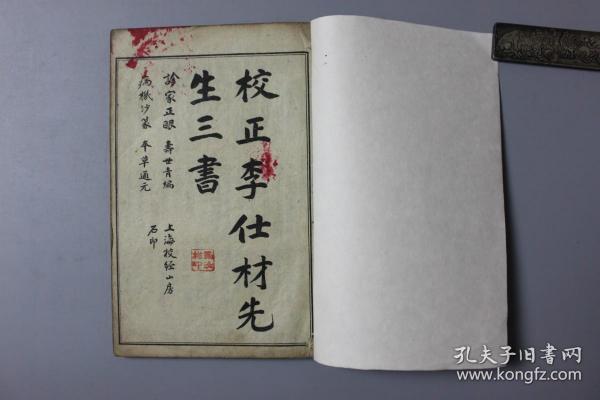 校正李仕材先
生三書
診家正眼　壽世青編
病機沙篆　本草通元
上海校經山房
石印
孔夫子旧書网
www.kongfz.com